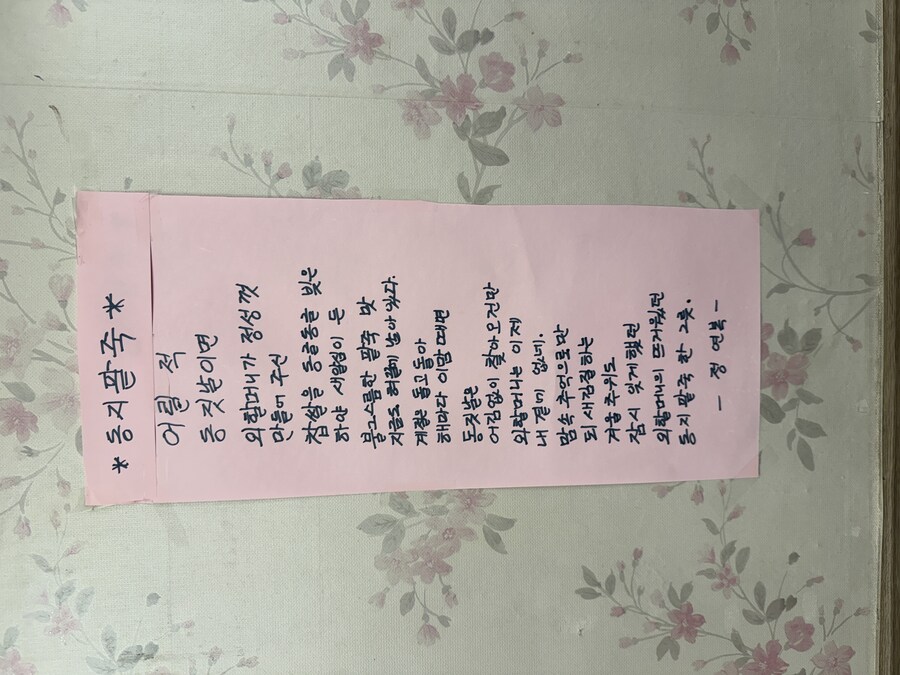 * 동지팥죽 *
어릴 적
동짓날이면
외할머니가 정성껏
만들어 주신
찹쌀을 동글동글 빚은
하얀 새알심이 든
불그스름한 팥죽 맛
지금도 혀끝에 남아 있다.
계절은 돌고돌아
해마다 이맘 때면
동짓날은
어김없이 찾아오건만
외할머니는 이제
내 곁에 없네.
맘속 추억으로만
되새김질하는
겨울 추위도
잠시 잊게 했던
외할머니의 뜨거웠던
동지 팥죽 한 그릇.
- 정 연복 -